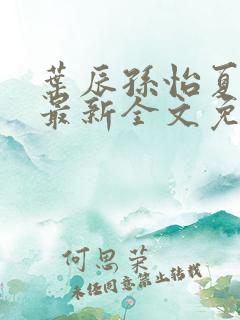 葉辰孫怡夏
最新全文免
何思荣
未经同意禁止转载